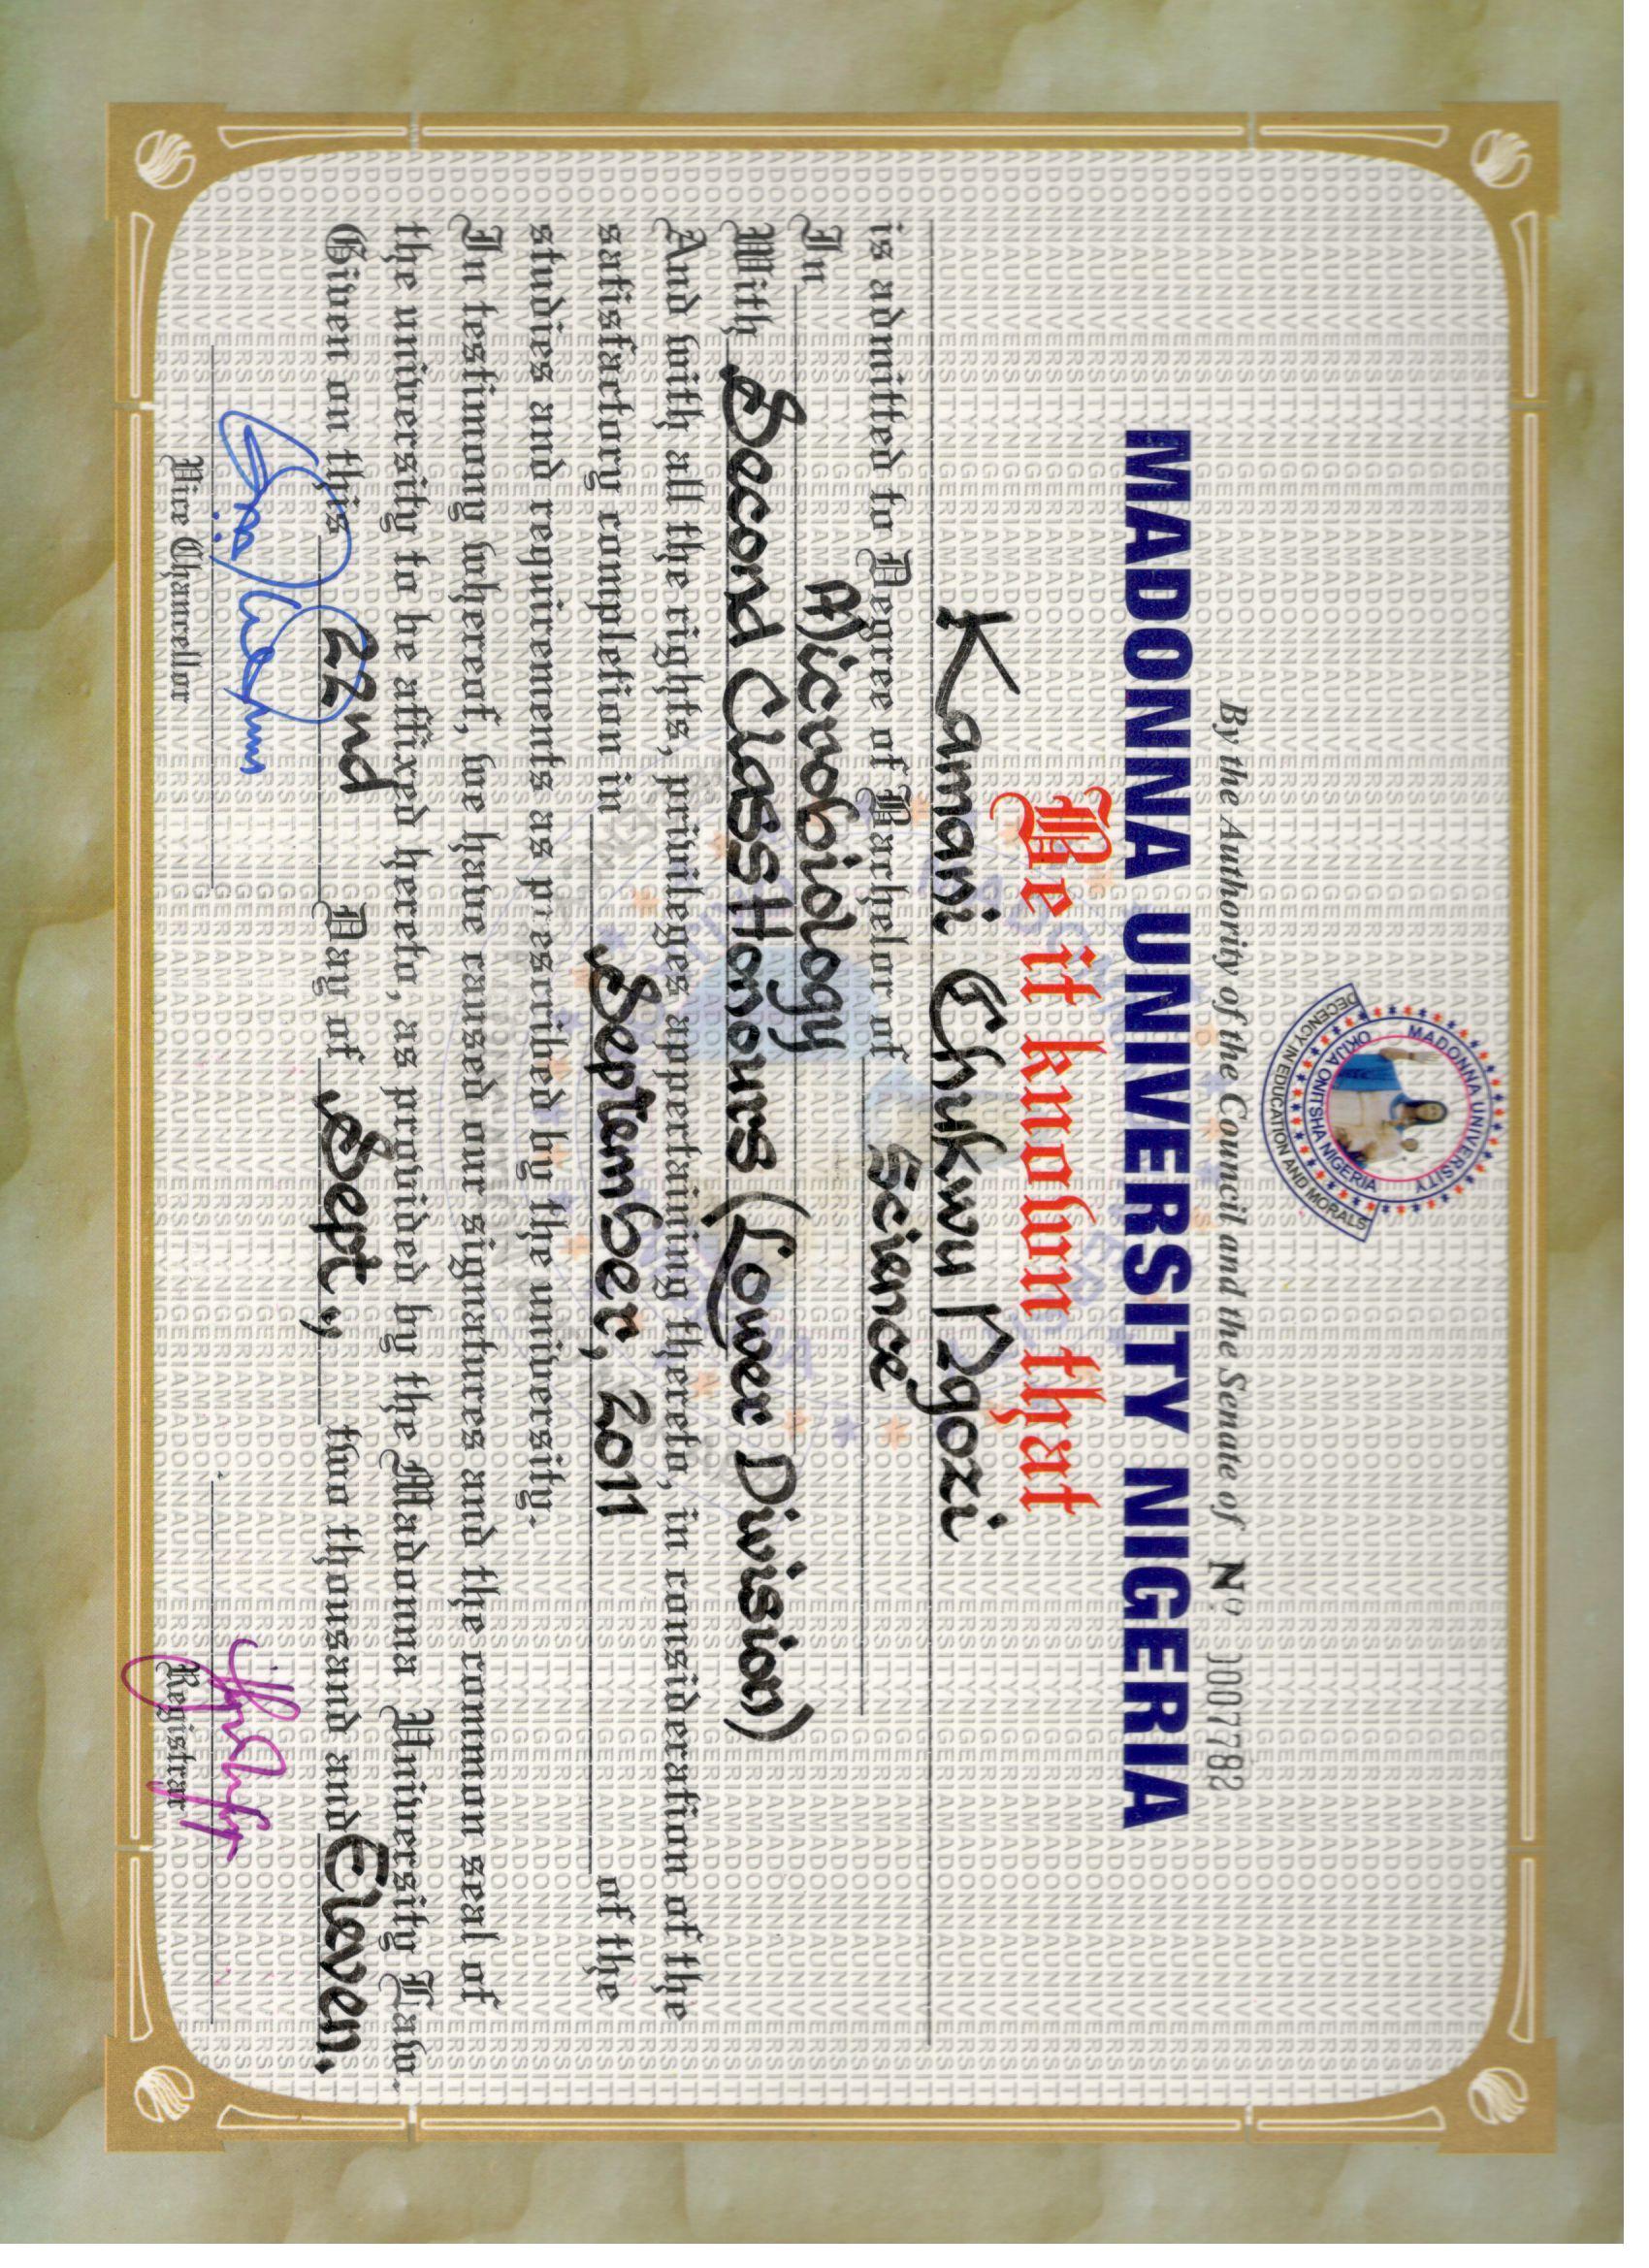 MADONNA UNIVERSITY
OKIJA ONITSHA NIGERIA
DECENCY IN EDUCATION AND MORALS
By the Authority of the Council and the Senate of Nº 0007782
MADONNA UNIVERSITY NIGERIA
Be it known that
Kamani Chukwu Ngozi
is admitted to Degree of Bachelor of Science
In Microbiology
With Second Class Honours (Lower Division)
And with all the rights, privileges appertaining thereto, in consideration of the
satisfactory completion in September, 2011 of the
studies and requirements as prescribed by the university.
In testimony whereof, we have caused our signatures and the common seal of
the university to be affixed hereto, as provided by the Madonna University Law.
Given on this 22nd Day of Sept., two thousand and Eleven.
Vice Chancellor Registrar